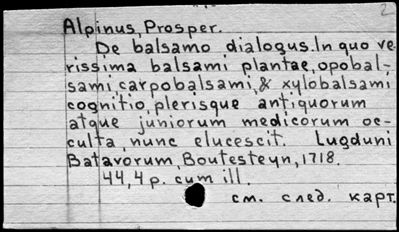 2
Alpinus, Prosper.
De balsamo dialogus. In quo ve-
rissima balsami plantae, opobal-
sami, carpobalsami, & xylobalsami
cognitio, plerisque antiquorum
atque juniorum medicorum oc-
culta, nunc elucescit. Lugduni
Batavorum, Boutesteyn, 1718.
44, 4 p. cum ill.
см. след. карт.